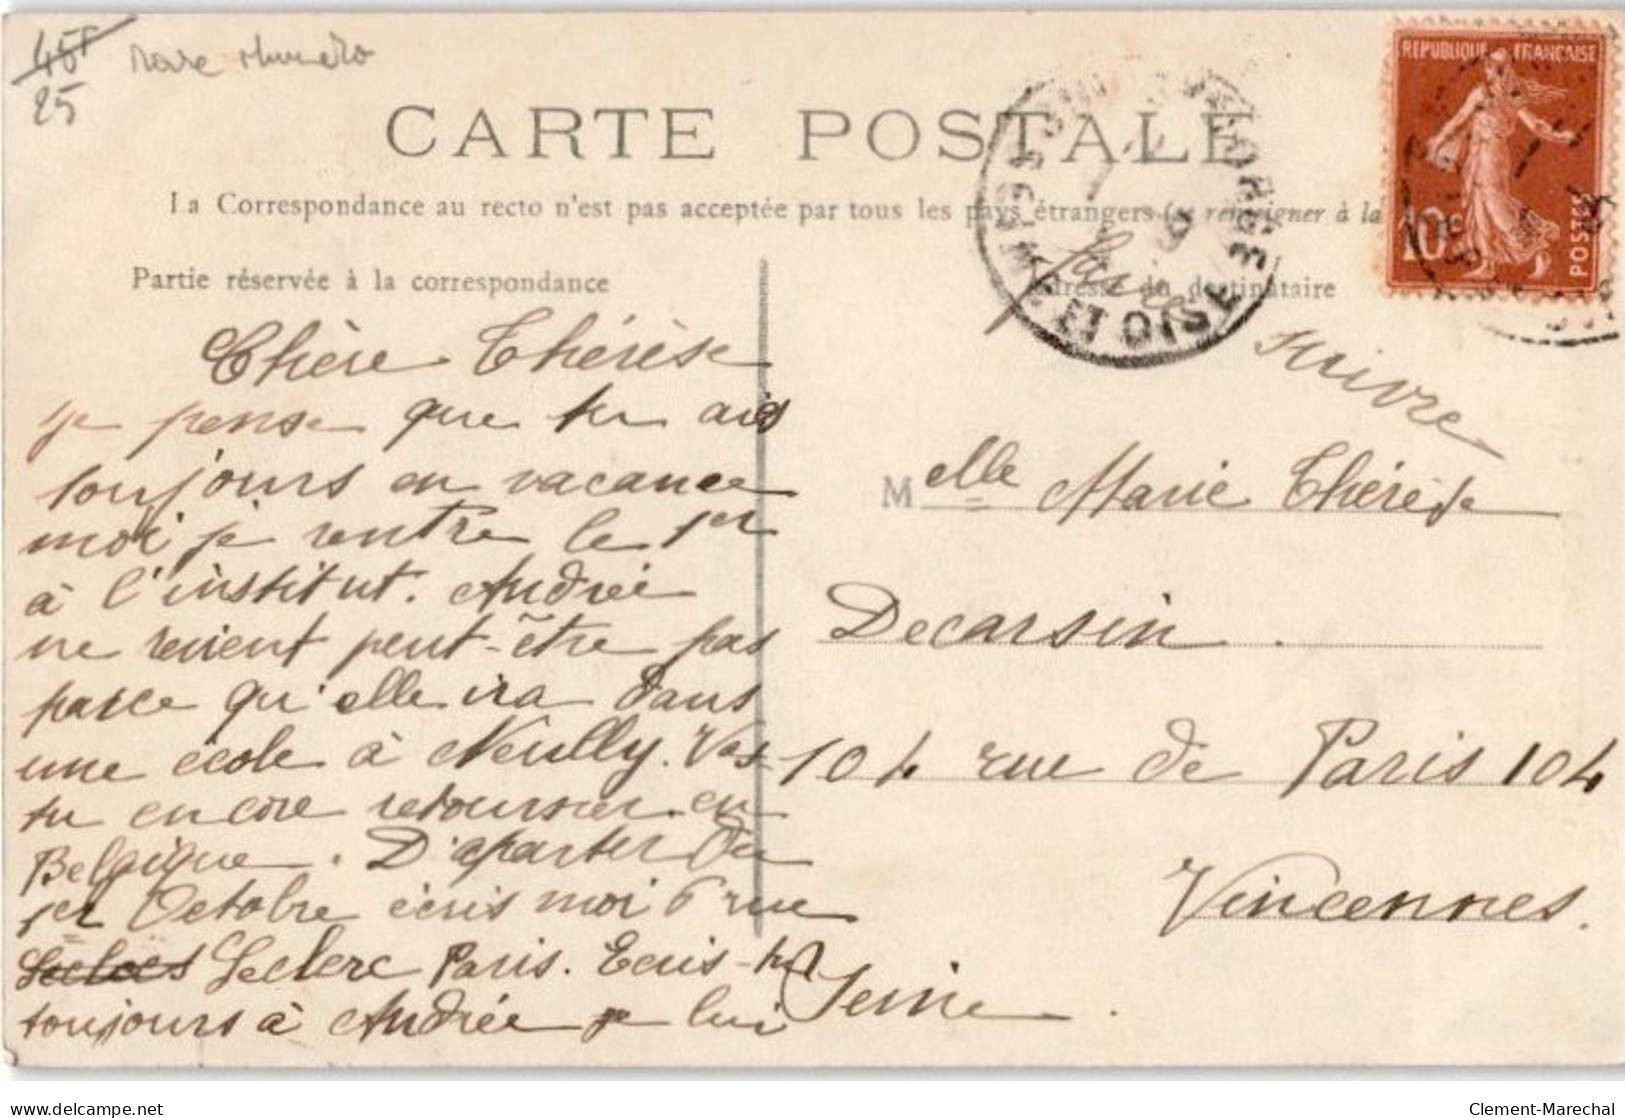 45f rare numéro
25
CARTE POSTALE
La Correspondance au recto n'est pas acceptée par tous les pays étrangers (se renseigner à la
Partie réservée à la correspondance
Adresse du destinataire
REPUBLIQUE FRANÇAISE
10c POSTES
SEINE ET OISE
faire
suivre
Chère Thérèse
je pense que tu aies
toujours en vacance
moi je rentre le 1er
à l'institut. Andrée
ne revient peut-être pas
parce qu'elle ira dans
une école à Neuilly. Vas-
tu encore retourner en
Belgique. D'aparter du
1er Octobre écris moi 6 rue
Leclerc Paris. Ecris-tu
toujours à Andrée je lui
Melle Marie Thérèse
Decarsin.
104 rue de Paris 104
Vincennes.
Seine.
delcampe.net
Clement-Marechal